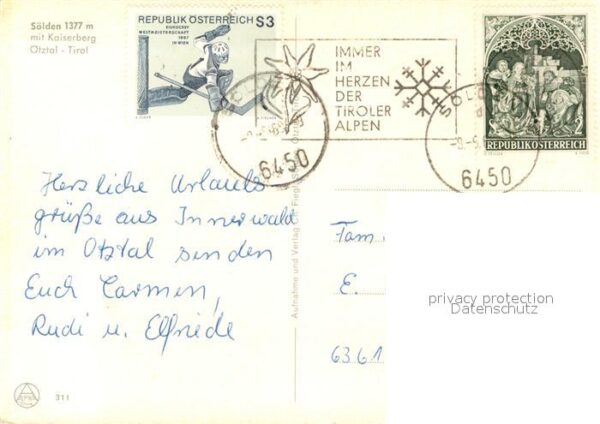 Sölden 1377 m
mit Kaiserberg
Ötztal - Tirol
REPUBLIK ÖSTERREICH S3
EISHOCKEY
WELTMEISTERSCHAFT
1967
IN WIEN
IMMER
IM
HERZEN
DER
TIROLER
ALPEN
6450
6450
REPUBLIK ÖSTERREICH
Herzliche Urlaubs
grüße aus Innerwald
im Ötztal senden
Euch Carmen,
Rudi u. Elfriede
Aufnahme und Verlag
Fam
E.
63.6.1
privacy protection
Datenschutz
311